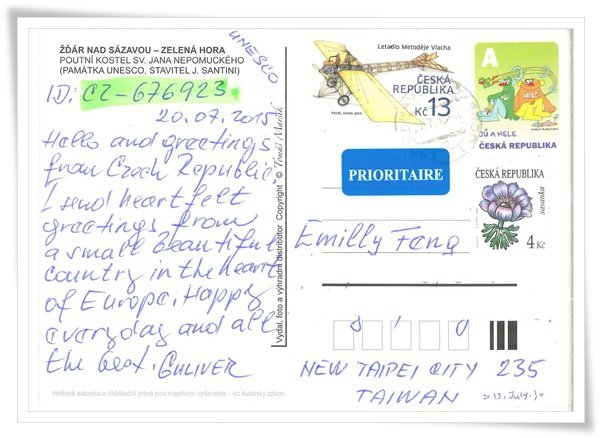 ŽĎÁR NAD SÁZAVOU – ZELENÁ HORA
POUTNÍ KOSTEL SV. JANA NEPOMUCKÉHO
(PAMÁTKA UNESCO, STAVITEL J. SANTINI)
UNESCO
ID: CZ-676923
20.07.2015
Hello and greetings
from Czech Republic
I send heartfelt
greetings from
a small beautiful
country in the heart
of Europe. Happy
everyday and all
the best. GULIVER
Veškerá autorská a distribuční práva jsou majetkem vydavatele - viz Autorský zákon.
Vydal, foto a výhradní distributor Copyright ©
Letadlo Metoděje Vlacha
ČESKÁ
REPUBLIKA
Kč 13
PAVEL SIVKO 2015
A
JŮ A HELE
ČESKÁ REPUBLIKA
PRIORITAIRE
ČESKÁ REPUBLIKA
sasanka
4 Kč
Emilly Fang
NEW TAIPEI CITY 235
TAIWAN